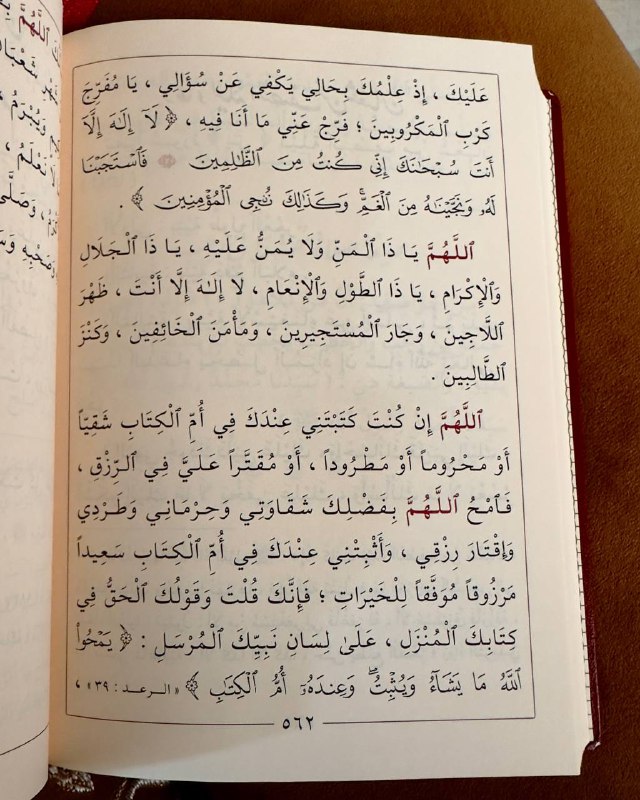 عَلَيْكَ ، إِذْ عِلْمُكَ بِحَالِي يَكْفِي عَنْ سُؤَالِي ، يَا مُفَرِّجَ
كَرْبِ ٱلْمَكْرُوبِينَ ؛ فَرِّجْ عَنِّي مَا أَنَا فِيهِ ، ﴿ لَآ إِلَٰهَ إِلَّآ
أَنتَ سُبْحَٰنَكَ إِنِّي كُنتُ مِنَ ٱلظَّٰلِمِينَ فَٱسْتَجَبْنَا
لَهُۥ وَنَجَّيْنَٰهُ مِنَ ٱلْغَمِّ ۚ وَكَذَٰلِكَ نُـۨجِي ٱلْمُؤْمِنِينَ ﴾ .
ٱللَّهُمَّ يَا ذَا ٱلْمَنِّ وَلَا يُمَنُّ عَلَيْهِ ، يَا ذَا ٱلْجَلَالِ
وَٱلْإِكْرَامِ ، يَا ذَا ٱلطَّوْلِ وَٱلْإِنْعَامِ ، لَا إِلَٰهَ إِلَّا أَنْتَ ، ظَهْرَ
ٱللَّاجِينَ ، وَجَارَ ٱلْمُسْتَجِيرِينَ ، وَمَأْمَنَ ٱلْخَائِفِينَ ، وَكَنْزَ
ٱلطَّالِبِينَ .
ٱللَّهُمَّ إِنْ كُنْتَ كَتَبْتَنِي عِنْدَكَ فِي أُمِّ ٱلْكِتَابِ شَقِيّاً
أَوْ مَحْرُوماً أَوْ مَطْرُوداً ، أَوْ مُقَتَّراً عَلَيَّ فِي ٱلرِّزْقِ ،
فَٱمْحُ ٱللَّهُمَّ بِفَضْلِكَ شَقَاوَتِي وَحِرْمَانِي وَطَرْدِي
وَإِقْتَارَ رِزْقِي ، وَأَثْبِتْنِي عِنْدَكَ فِي أُمِّ ٱلْكِتَابِ سَعِيداً
مَرْزُوقاً مُوَفَّقاً لِلْخَيْرَاتِ ؛ فَإِنَّكَ قُلْتَ وَقَوْلُكَ ٱلْحَقُّ فِي
كِتَابِكَ ٱلْمُنْزَلِ ، عَلَىٰ لِسَانِ نَبِيِّكَ ٱلْمُرْسَلِ : ﴿ يَمْحُوا۟
ٱللَّهُ مَا يَشَآءُ وَيُثْبِتُ ۖ وَعِندَهُۥٓ أُمُّ ٱلْكِتَٰبِ ﴾ « الرعد : ٣٩ » ،
٥٦٢